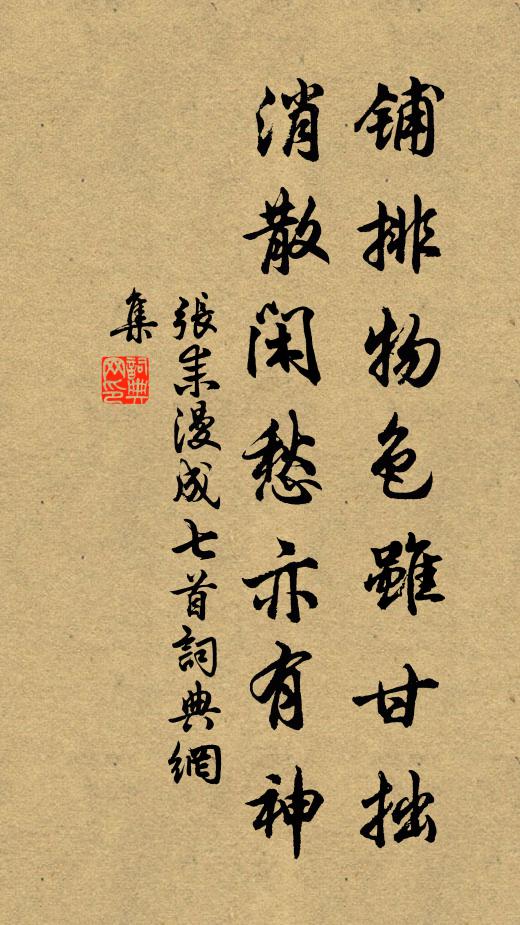 铺排物色雖甘拙
消散閑愁亦有神
張耒漫成七首詞典網
集
詞典网印